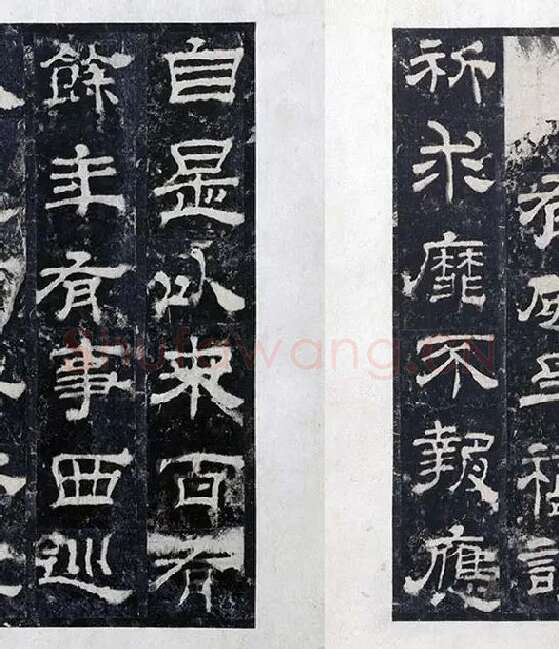 祈求靡不報應
自是以來百有
餘年有事西巡
shufawang.cn